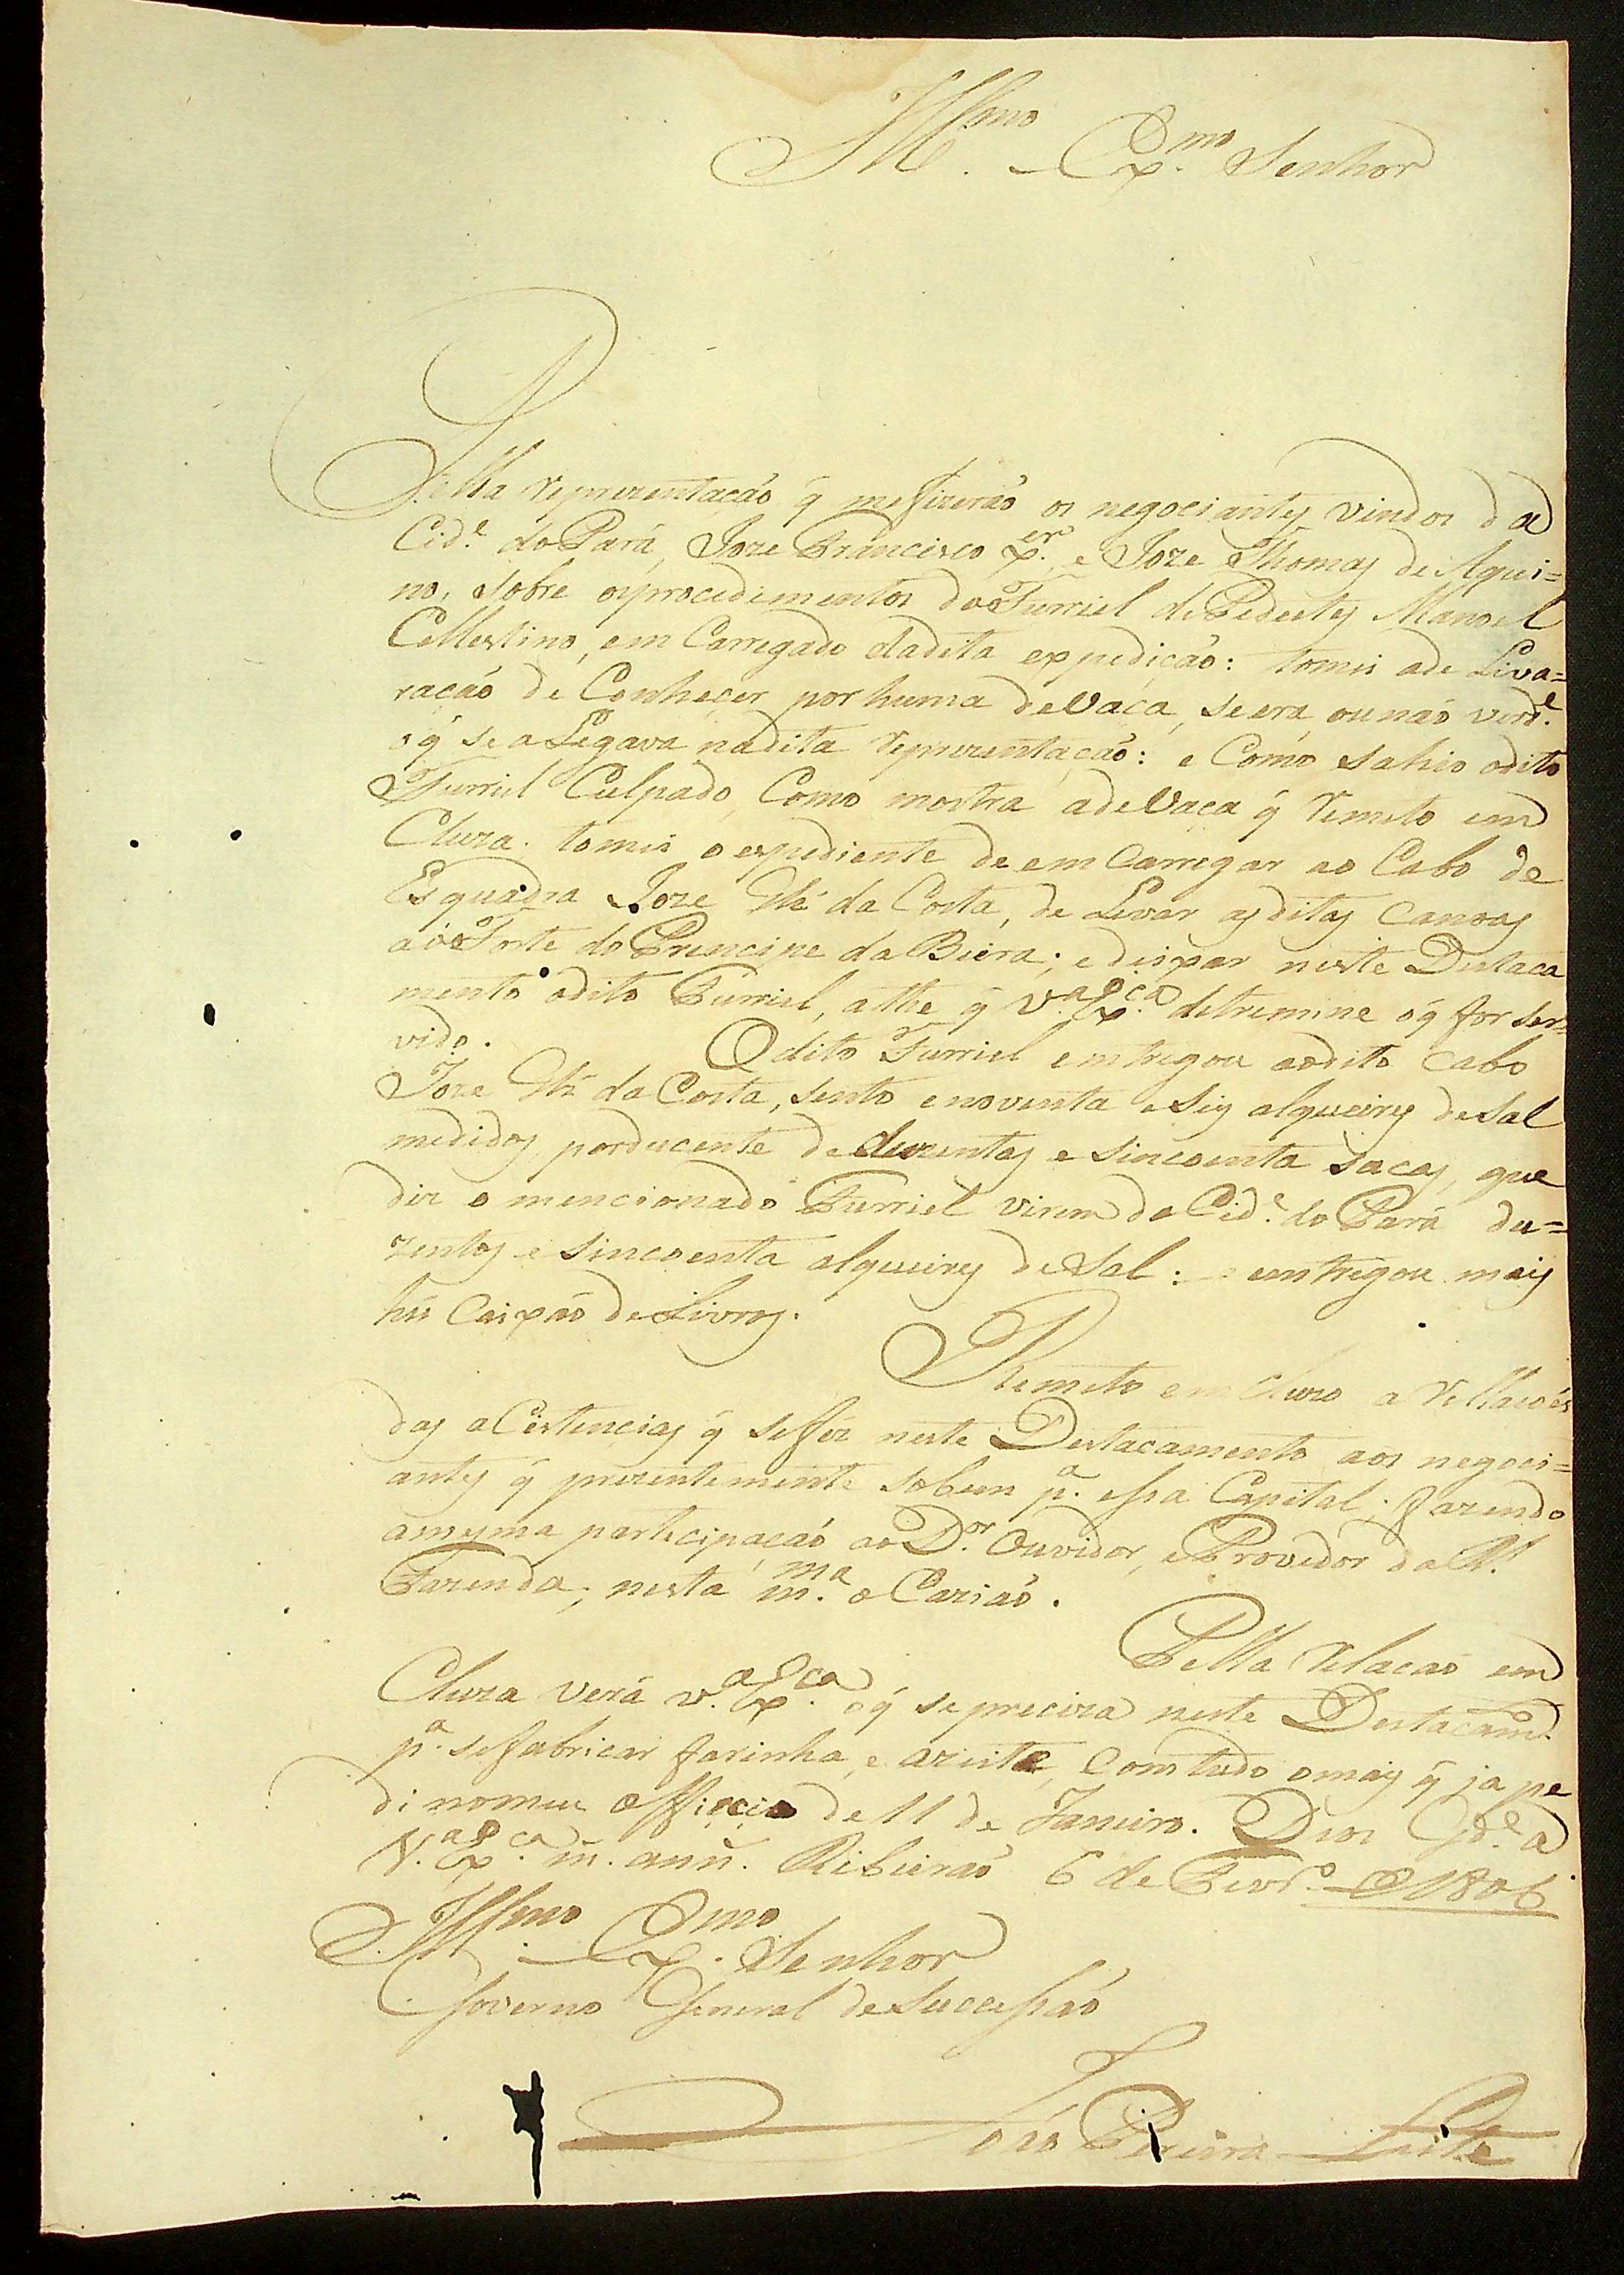 Illmo. Exmo. Senhor
Pella reprezentacáo q̃ mefizeráo os negociantes vindos da
Cide. do Pará, Joze Francisco Xer. e Joze Thomas de Aqui=
no, sobre osprocedimentos do Furriel de Pedestes Manoel
Cellestino, em Carregado dadita expedição: tomei ade Liva=
raçáo de Conheçer por huma deVaça, seera, ounáo verde.
oq̃ se aLegava nadita reprezentaçáo: e Como sahio odito
Furriel Culpado, Como mostra adeVaça q̃ remeto em
Cluza. tomei o expediente de em Carregar ao Cabo de
Esquadra Joze Me. da Costa, de Levar asditas canoas
aó Forte do Principe da Biera; e dixpar neste Destaca
mento odito Furriel, athe q̃ V.a Ex.ca detremine oq̃ for ser=
vido. Odito Furriel emtregou aodito Cabo
Joze Me. da Costa, sento enoventa eSeis alqueires deSal
medidos, porducente de duzentas e sincoenta sacas, que
diz o mencionado Furriel virem da Cide. do Pará du=
zentos e sincoenta alqueires de Sal: e entregou mais
hũ Caixáo de Livros.
Remeto em Cluzo a rellacóes
das aCestencias q̃ sefez neste Destacamento aos negoci=
antes q̃ prezentemente sobem pa. essa Capital. fazendo
amesma partecipaçáo ao Dor. Ouvidor, e Provedor da Rl.
Fazenda; nesta m.ma oCazião.
Pella relacáo em
Cluza verá V.a Ex.ca oq̃ se preciza neste Destacamto.
pa. sefabricar farinha, e azeite, Comtudo omais q̃ ja pe
di nomeu officio de 11 de Janeiro. Deos Gde. a
V.a Ex.ca m. ann. Ribieráo 6 de Fevro. de 1806
Illmo. Exmo. Senhor
Governo General de Sucessáo
Joáo Pereira Leite